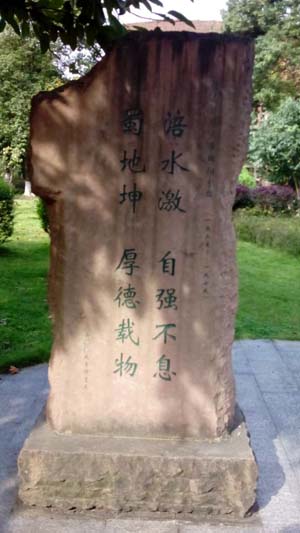 涪水激 自强不息
蜀地坤 厚德载物